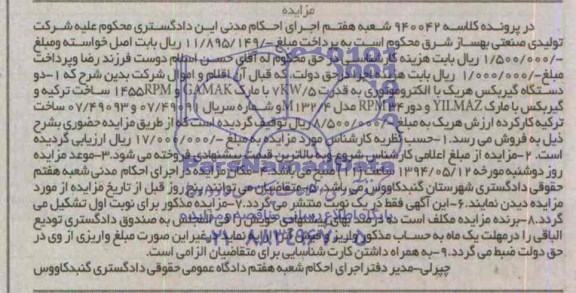 مزایده
در پرونده کلاسه ۹۴۰۰۴۲ شعبه هفتم اجرای احکام مدنی این دادگستری محکوم علیه شرکت
تولیدی صنعتی بهساز شرق محکوم است به پرداخت مبلغ ۱۱/۸۹۵/۱۴۹/- ریال بابت اصل خواسته ومبلغ
۱/۵۰۰/۰۰۰/- ریال بابت هزینه کارشناسی در حق محکوم له آقای حسن اسلام دوست فرزند رضا وپرداخت
مبلغ ۱/۰۰۰/۰۰۰/- ریال بابت هزینه اجرا در حق دولت که قبال آن اقلام و اموال شرکت بدین شرح که ۱-دو
دستگاه گیربکس هریک با الکتروموتوری به قدرت ۷/۵KW با مارک GAMAK و ۱۴۵۵RPM ساخت ترکیه و
گیربکس با مارک YILMAZ و دور ۳۴RPM مدل M۱۳۲/۴ و شماره سریال ۰۷/۴۹۰۹۱ و ۰۷/۴۹۰۹۳ ساخت
ترکیه کارکرده ارزش هریک به مبلغ ۸/۵۰۰/۰۰۰/- ریال توقیف گردیده است که از طریق مزایده حضوری بشرح
ذیل به فروش می رسد.۱-حسب نظریه کارشناس مورد مزایده به مبلغ ۱۷/۰۰۰/۰۰۰/- ریال ارزیابی گردیده
است. ۲-مزایده از مبلغ اعلامی کارشناس شروع و به بالاترین قیمت پیشنهادی فروخته می شود.۳-موعد مزایده
روز دوشنبه مورخه ۱۳۹۴/۰۵/۱۲ ساعت ۱۱ صبح می باشد.۴-مکان مزایده در اجرای احکام مدنی شعبه هفتم
حقوقی دادگستری شهرستان گنبدکاووس می باشد.۵-متقاضیان می توانند پنج روز قبل از تاریخ مزایده از مورد
مزایده دیدن نمایند.۶-این آگهی فقط در یک نوبت منتشر می گردد.۷-مزایده مذکور برای نوبت اول تشکیل می
گردد.۸-برنده مزایده مکلف است ده درصد بهای پیشنهادی خویش را فی المجلس به صندوق دادگستری تودیع
الباقی را درمهلت یک ماه به حساب مذکور واریز و فیش آنرا ارائه نماید درغیر این صورت مبلغ واریزی از وی در
حق دولت ضبط می گردد.۹-به همراه داشتن کارت شناسایی برای متقاضیان الزامی است.
چپرلی-مدیر دفتر اجرای احکام شعبه هفتم دادگاه عمومی حقوقی دادگستری گنبدکاووس